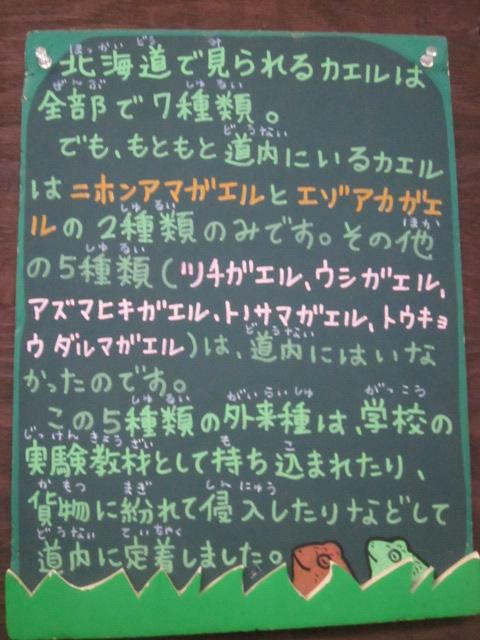 北海道で見られるカエルは
全部で7種類。
でも、もともと道内にいるカエル
はニホンアマガエルとエゾアカガエ
ルの2種類のみです。その他
の5種類(ツチガエル、ウシガエル、
アズマヒキガエル、トノサマガエル、トウキョ
ウダルマガエル)は、道内にはいな
かったのです。
この5種類の外来種は、学校の
実験教材として持ち込まれたり、
貨物に紛れて侵入したりなどして
道内に定着しました。